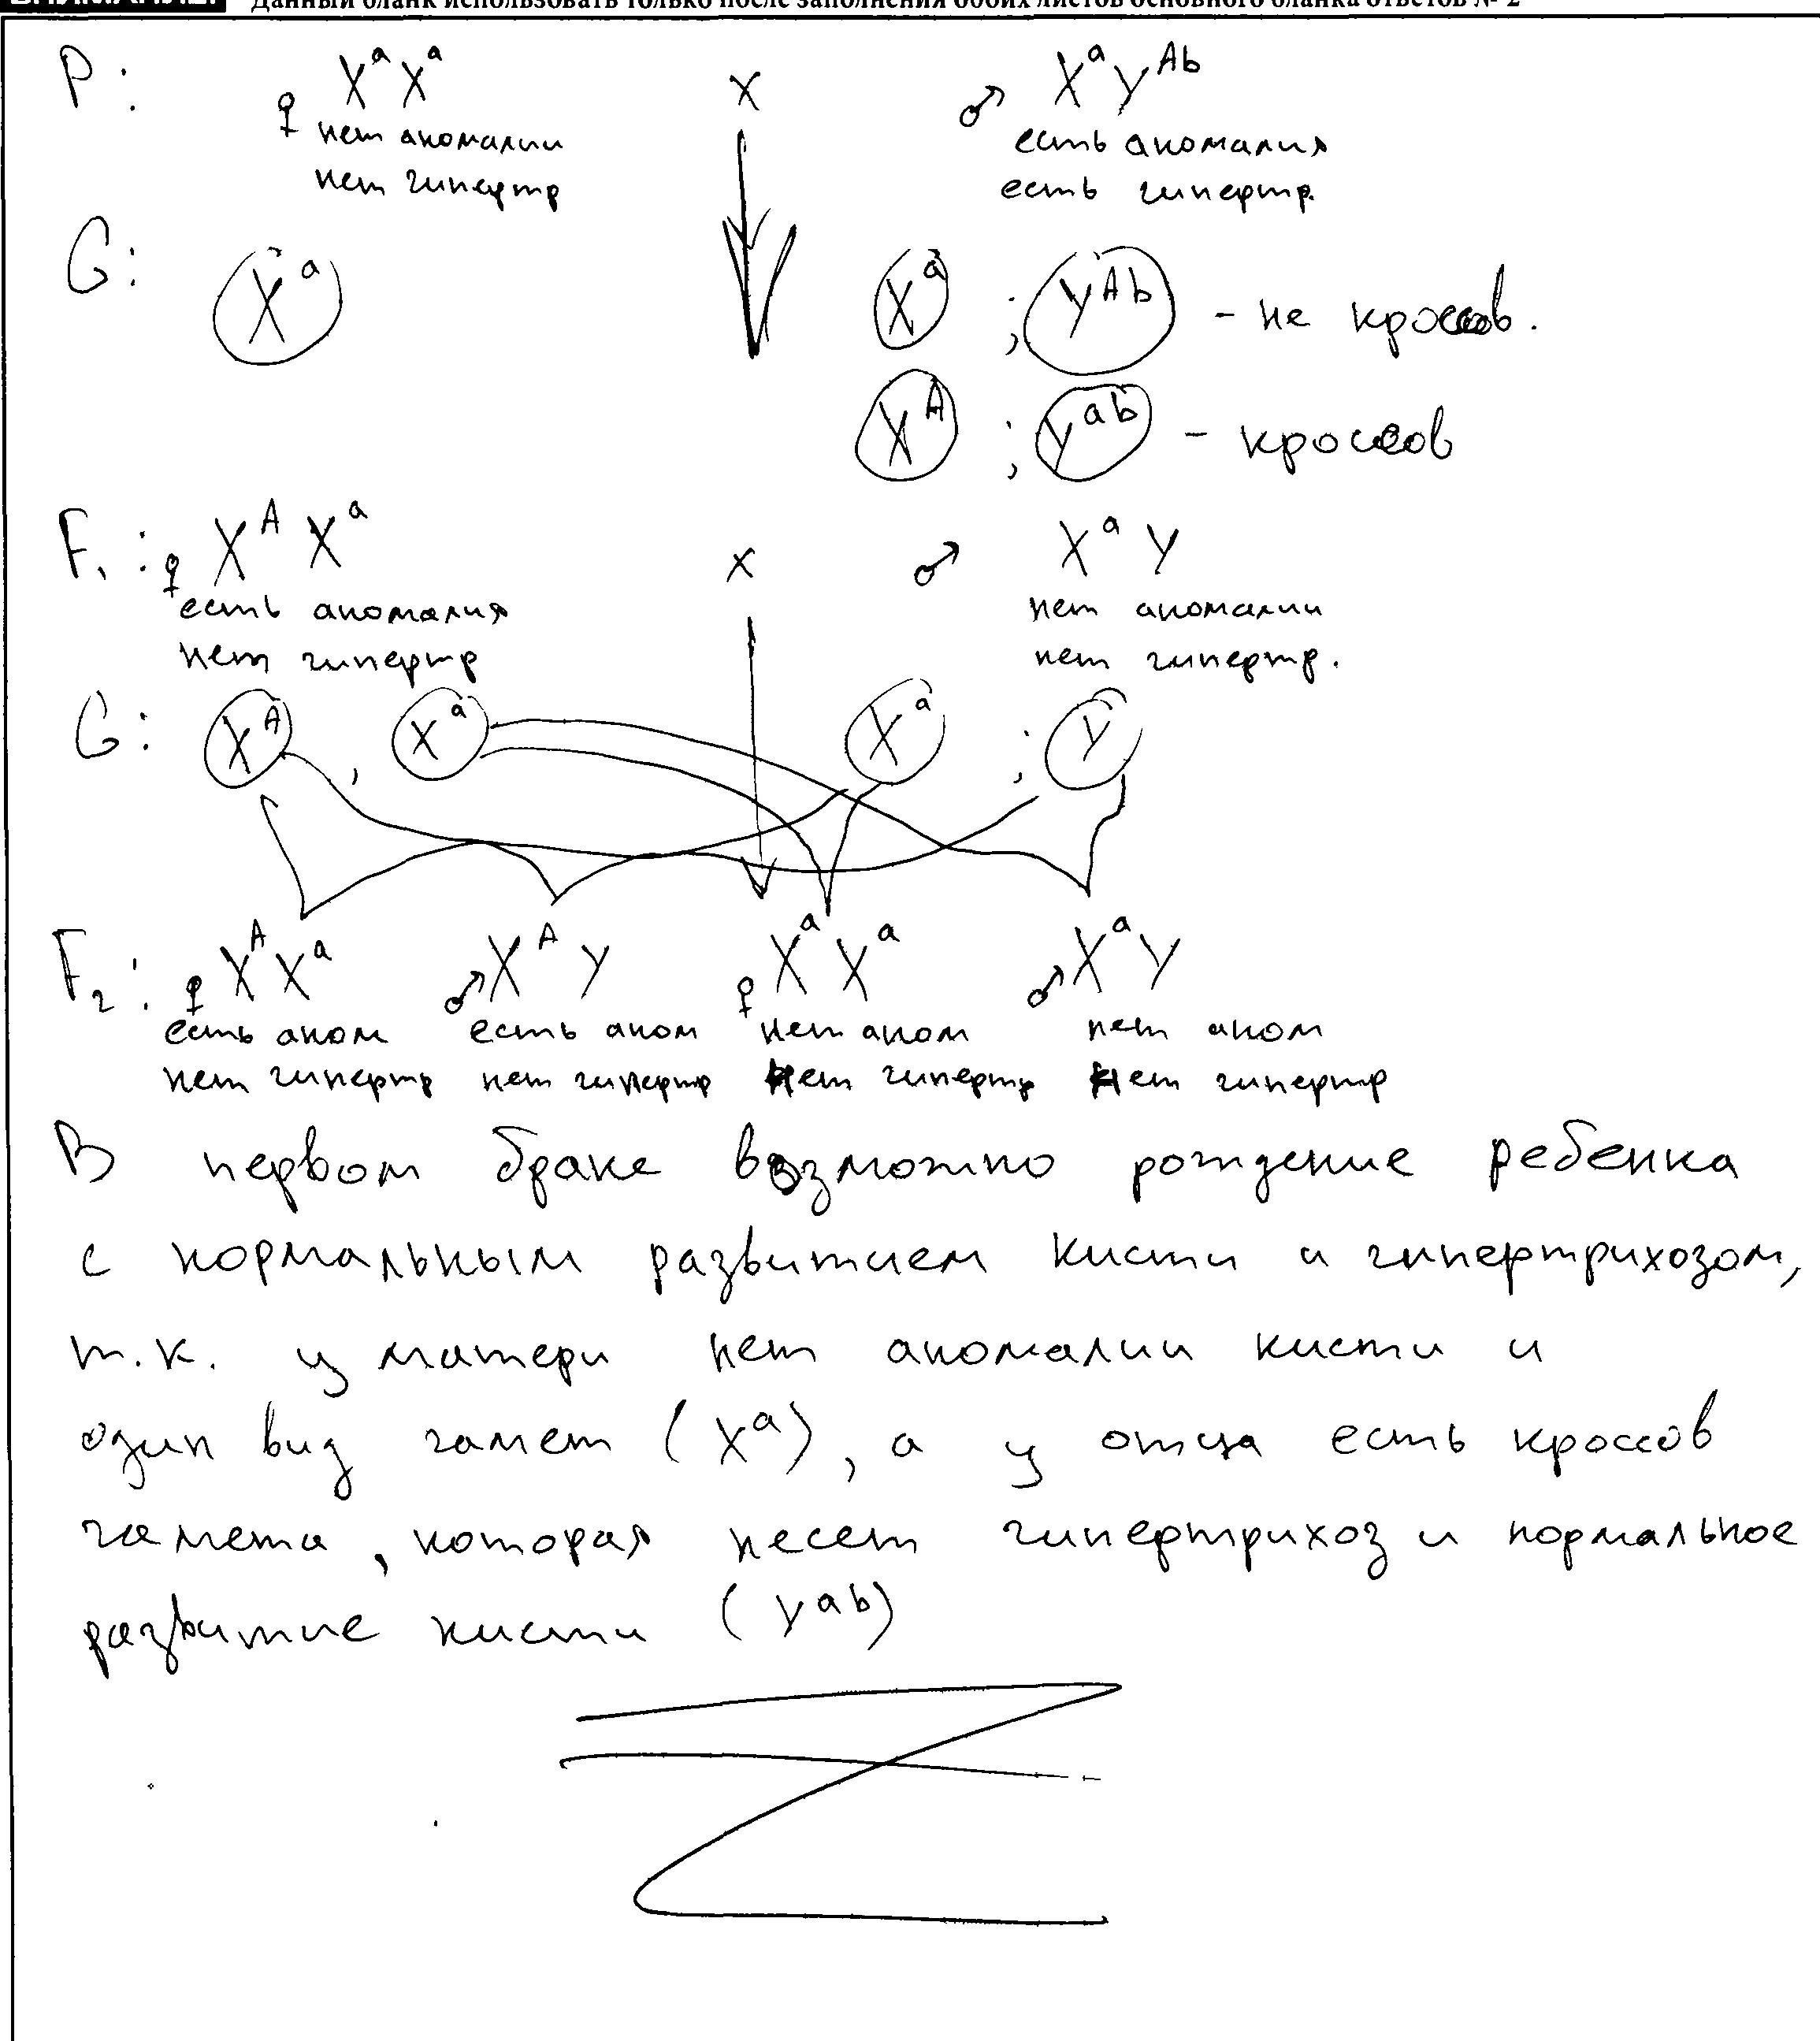 Данный бланк использовать только после заполнения обоих листов основного бланка ответов № 2
P: ♀ XᵃXᵃ x ♂ XᵃYᴬᵇ
нет аномалии есть аномалия
нет гипертр есть гипертр.
G: Xᵃ Xᵃ ; Yᴬᵇ - не кроссов.
Xᴬ ; Yᵃᵇ - кроссов
F₁: ♀ XᴬXᵃ x ♂ XᵃY
есть аномалия нет аномалии
нет гипертр нет гипертр.
G: Xᴬ , Xᵃ Xᵃ ; Y
F₂: ♀ XᴬXᵃ ♂ XᴬY ♀ XᵃXᵃ ♂ XᵃY
есть аном есть аном нет аном нет аном
нет гипертр нет гипертр нет гипертр нет гипертр
В первом браке возможно рождение ребенка
с нормальным развитием кисти и гипертрихозом,
т.к. у матери нет аномалии кисти и
один вид гамет (Xᵃ), а у отца есть кроссов
гамета, которая несет гипертрихоз и нормальное
развитие кисти (Yᵃᵇ)